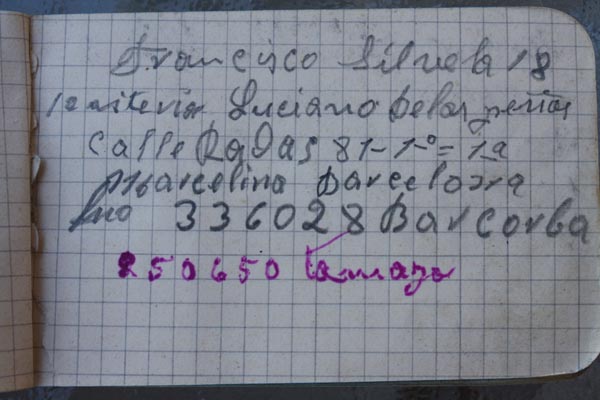 Francisco Silvela 18
Luciano Delas peñas
Calle Radas 81-1-º=1a
Marcelina Barcelona
no 336028 Barcorba
250650